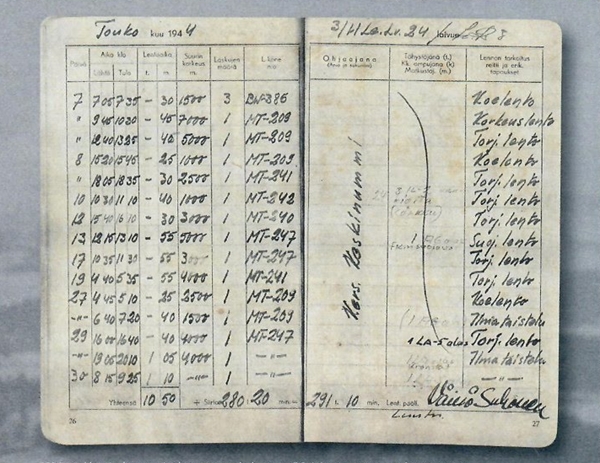 Touko kuu 1944
3/HLe.Lv. 24 laivue
Päivä Aika klo Lentoaika Suurin korkeus m Laskujen määrä L.kone n:o Ohjaajana Tähystäjänä (t.) Kk. ampujana (k) Matkustaj. (m.) Lennon tarkoitus reitti ja erik. tapaukset
Lähtö Tulo t. m.
7 705 735 – 30 1500 3 BW-386 Koelento
" 945 1030 – 45 7000 1 MT-209 Korkeuslento
" 1240 1325 – 45 5000 1 MT-209 Torj. lento
8 1520 1545 – 25 1000 1 MT-209 Koelento
" 1805 1835 – 30 2500 1 MT-241 Torj. lento
10 1030 1110 – 40 1000 1 MT-242 Torj. lento
12 1540 1610 – 30 3000 1 MT-240 Torj. lento
13 1215 1310 – 55 5000 1 MT-247 Suoj. lento
17 1035 1130 – 55 3000 1 MT-247 Torj. lento
19 440 535 – 55 4000 1 MT-241 Torj. lento
27 445 510 – 25 2500 1 MT-209 Koelento
–"– 640 720 – 40 1500 1 MT-209 Ilmataistelu
29 1600 1640 – 40 4000 1 MT-247 1 LA-5 alas Torj. lento
–"– 1905 2010 1 05 4000 1 –"– Ilmataistelu
30 815 925 1 10 –"– 1 –"– –"–
Kers. Koskinummi
Yhteensä 10 50 + Siirto 280 t. 20 min. = 291 t. 10 min. Lent. pääll. Väinö Suhonen
Luutn.
26
27